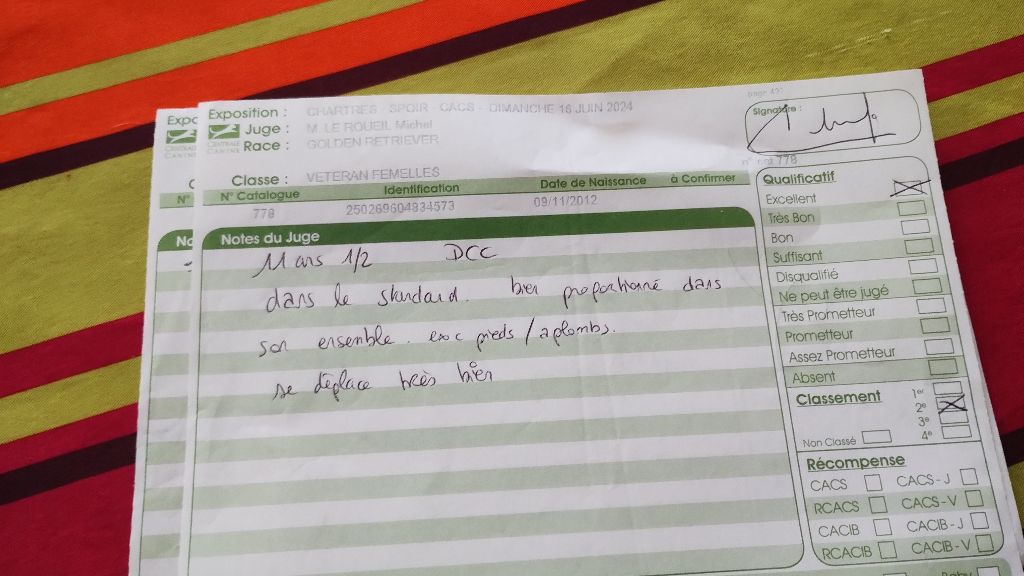 page 421
Exposition : CHARTRES SPOIR - CACS - DIMANCHE 16 JUIN 2024
Juge : M. LE ROUEIL Michel
Race : GOLDEN RETRIEVER
CENTRALE CANINE
Signature :
n° 778
Classe : VETERAN FEMELLES
N° Catalogue Identification Date de Naissance à Confirmer
778 250269604834573 09/11/2012
Notes du Juge
11 ans 1/2 DCC
dans le standard. bien proportionné dans
son ensemble. exc pieds / aplombs.
se déplace très bien
Qualificatif
Excellent
Très Bon
Bon
Suffisant
Disqualifié
Ne peut être jugé
Très Prometteur
Prometteur
Assez Prometteur
Absent
Classement
1er
2e
3e
4e
Non Classé
Récompense
CACS CACS - J
RCACS CACS - V
CACIB CACIB - J
RCACIB CACIB - V
Baby
Expo
N°
No